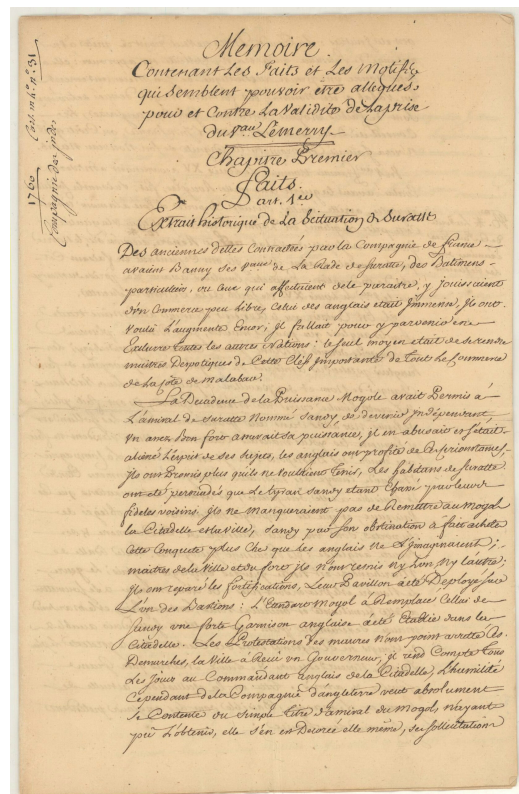 Memoire
Contenant Les Faits et Les Motifs
qui Semblent pouvoir être allegués
pour et Contre La Validité de La prise
du Vau Lemerry
Chapitre Premier
Faits
art. 1er
Extrait historique de La Scituation de Suratte
Des anciennes dettes Contractées par la Compagnie de france
avaient Banny Ses Vaux de La Rade de Suratte, des Batimens
particuliers, ou Ceux qui affectaient de le paraitre, y Jouissaient
d'un Commerce peu Libre, Celui des anglais etait Immense, Ils ont
Voulu L'augmenter Encor, Il fallait pour y parvenir en
Exclurre toutes les autres Nations: le Seul moyen etait de Se rendre
maitres Despotiques de Cette Clef Importante de tout Le Commerce
de La Côte de Malabar.
La Decadence de La Puissance Mogole avait Permis à
L'amiral de Suratte Nommé Sandy, de devenir Independant,
Un ancien bon fort assurait Sa puissance, Il en abusait et S'etait
aliené L'esprit de Ses Sujets, les anglais ont profité de Ces Circonstances,
Ils ont Promis plus qu'ils ne Voulaient tenir, Les habitans de Suratte
ont été persuadés que Le tyran Sandy etant Chassé par leurs
fideles voisins Ils ne manqueraient pas de Remettre au Mogol
la Citadelle et la Ville, Sandy par Son obstination à fait acheter
Cette Conquete plus Cher que Les anglais ne S'imaginaient;
maitres de la Ville et du fort Ils n'ont remis ny L'un ny L'autre;
Ils ont reparé les fortifications, Leur Pavillon a été Deployé Sur
L'un des Bastions: L'Etendard Mogol à Remplacé Celui de
Sandy une forte Garnison anglaise a été Etablie dans la
Citadelle. Les Protestations des maures n'ont point arretté les
Demarches, la Ville à Recû un Gouverneur, il rend Compte tous
Les Jours au Commandant anglais de la Citadelle, L'humilité
Cependant de La Compagnie d'angleterre veut absolument
Se Contenter du Simple titre d'amiral du Mogol, n'ayant
pû L'obtenir, elle S'en est Decorée elle même, Ses Sollicitations
1760
Compagnie des Indes
Cart. M.4. n° 31